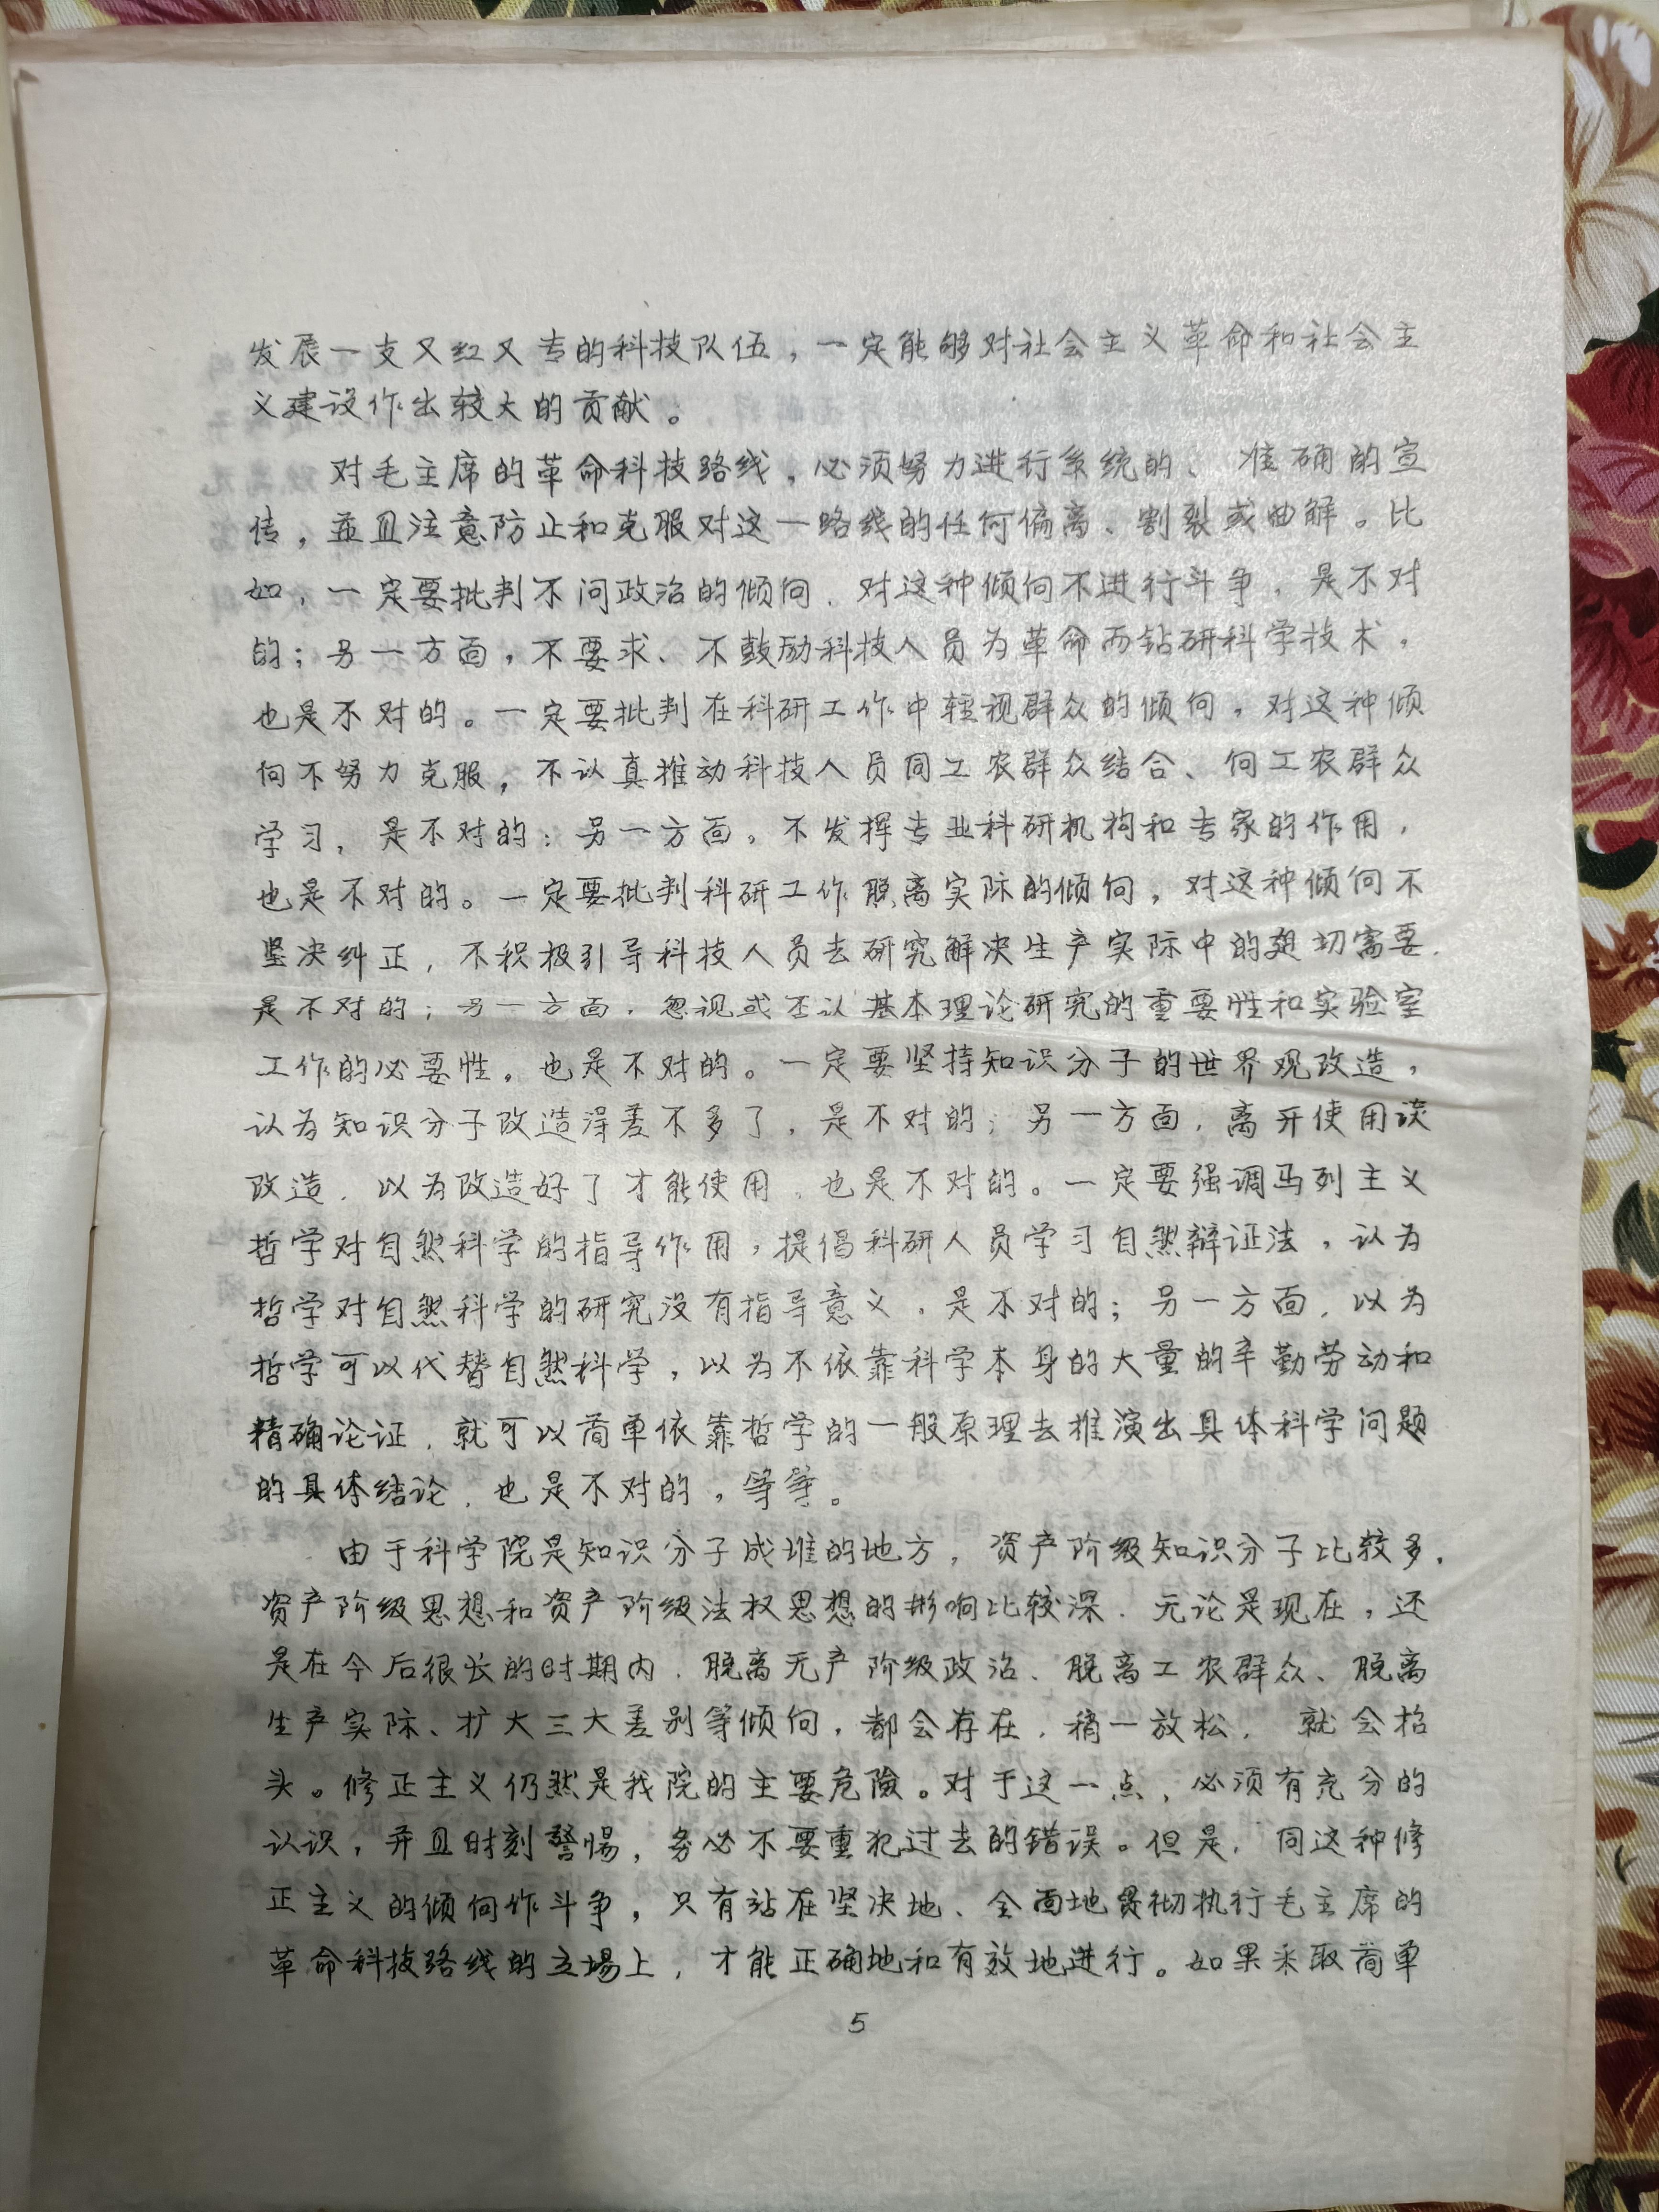 发展一支又红又专的科技队伍，一定能够对社会主义革命和社会主
义建设作出较大的贡献。
对毛主席的革命科技路线，必须努力进行系统的、准确的宣
传，並且注意防止和克服对这一路线的任何偏离、割裂或曲解。比
如，一定要批判不问政治的倾向，对这种倾向不进行斗争，是不对
的；另一方面，不要求、不鼓励科技人员为革命而钻研科学技术，
也是不对的。一定要批判在科研工作中轻视群众的倾向，对这种倾
向不努力克服，不认真推动科技人员同工农群众结合、向工农群众
学习，是不对的；另一方面，不发挥专业科研机构和专家的作用，
也是不对的。一定要批判科研工作脱离实际的倾向，对这种倾向不
坚决纠正，不积极引导科技人员去研究解决生产实际中的迫切需要，
是不对的；另一方面，忽视或否认基本理论研究的重要性和实验室
工作的必要性，也是不对的。一定要坚持知识分子的世界观改造，
认为知识分子改造得差不多了，是不对的；另一方面，离开使用谈
改造，以为改造好了才能使用，也是不对的。一定要强调马列主义
哲学对自然科学的指导作用，提倡科研人员学习自然辩证法，认为
哲学对自然科学的研究没有指导意义，是不对的；另一方面，以为
哲学可以代替自然科学，以为不依靠科学本身的大量的辛勤劳动和
精确论证，就可以简单依靠哲学的一般原理去推演出具体科学问题
的具体结论，也是不对的，等等。
由于科学院是知识分子成堆的地方，资产阶级知识分子比较多，
资产阶级思想和资产阶级法权思想的影响比较深，无论是现在，还
是在今后很长的时期内，脱离无产阶级政治、脱离工农群众、脱离
生产实际、扩大三大差别等倾向，都会存在，稍一放松，就会抬
头。修正主义仍然是我院的主要危險。对于这一点，必须有充分的
认识，并且时刻警惕，务必不要重犯过去的错误。但是，同这种修
正主义的倾向作斗争，只有站在坚决地、全面地贯彻执行毛主席的
革命科技路线的立場上，才能正确地和有效地进行。如果采取简单
5